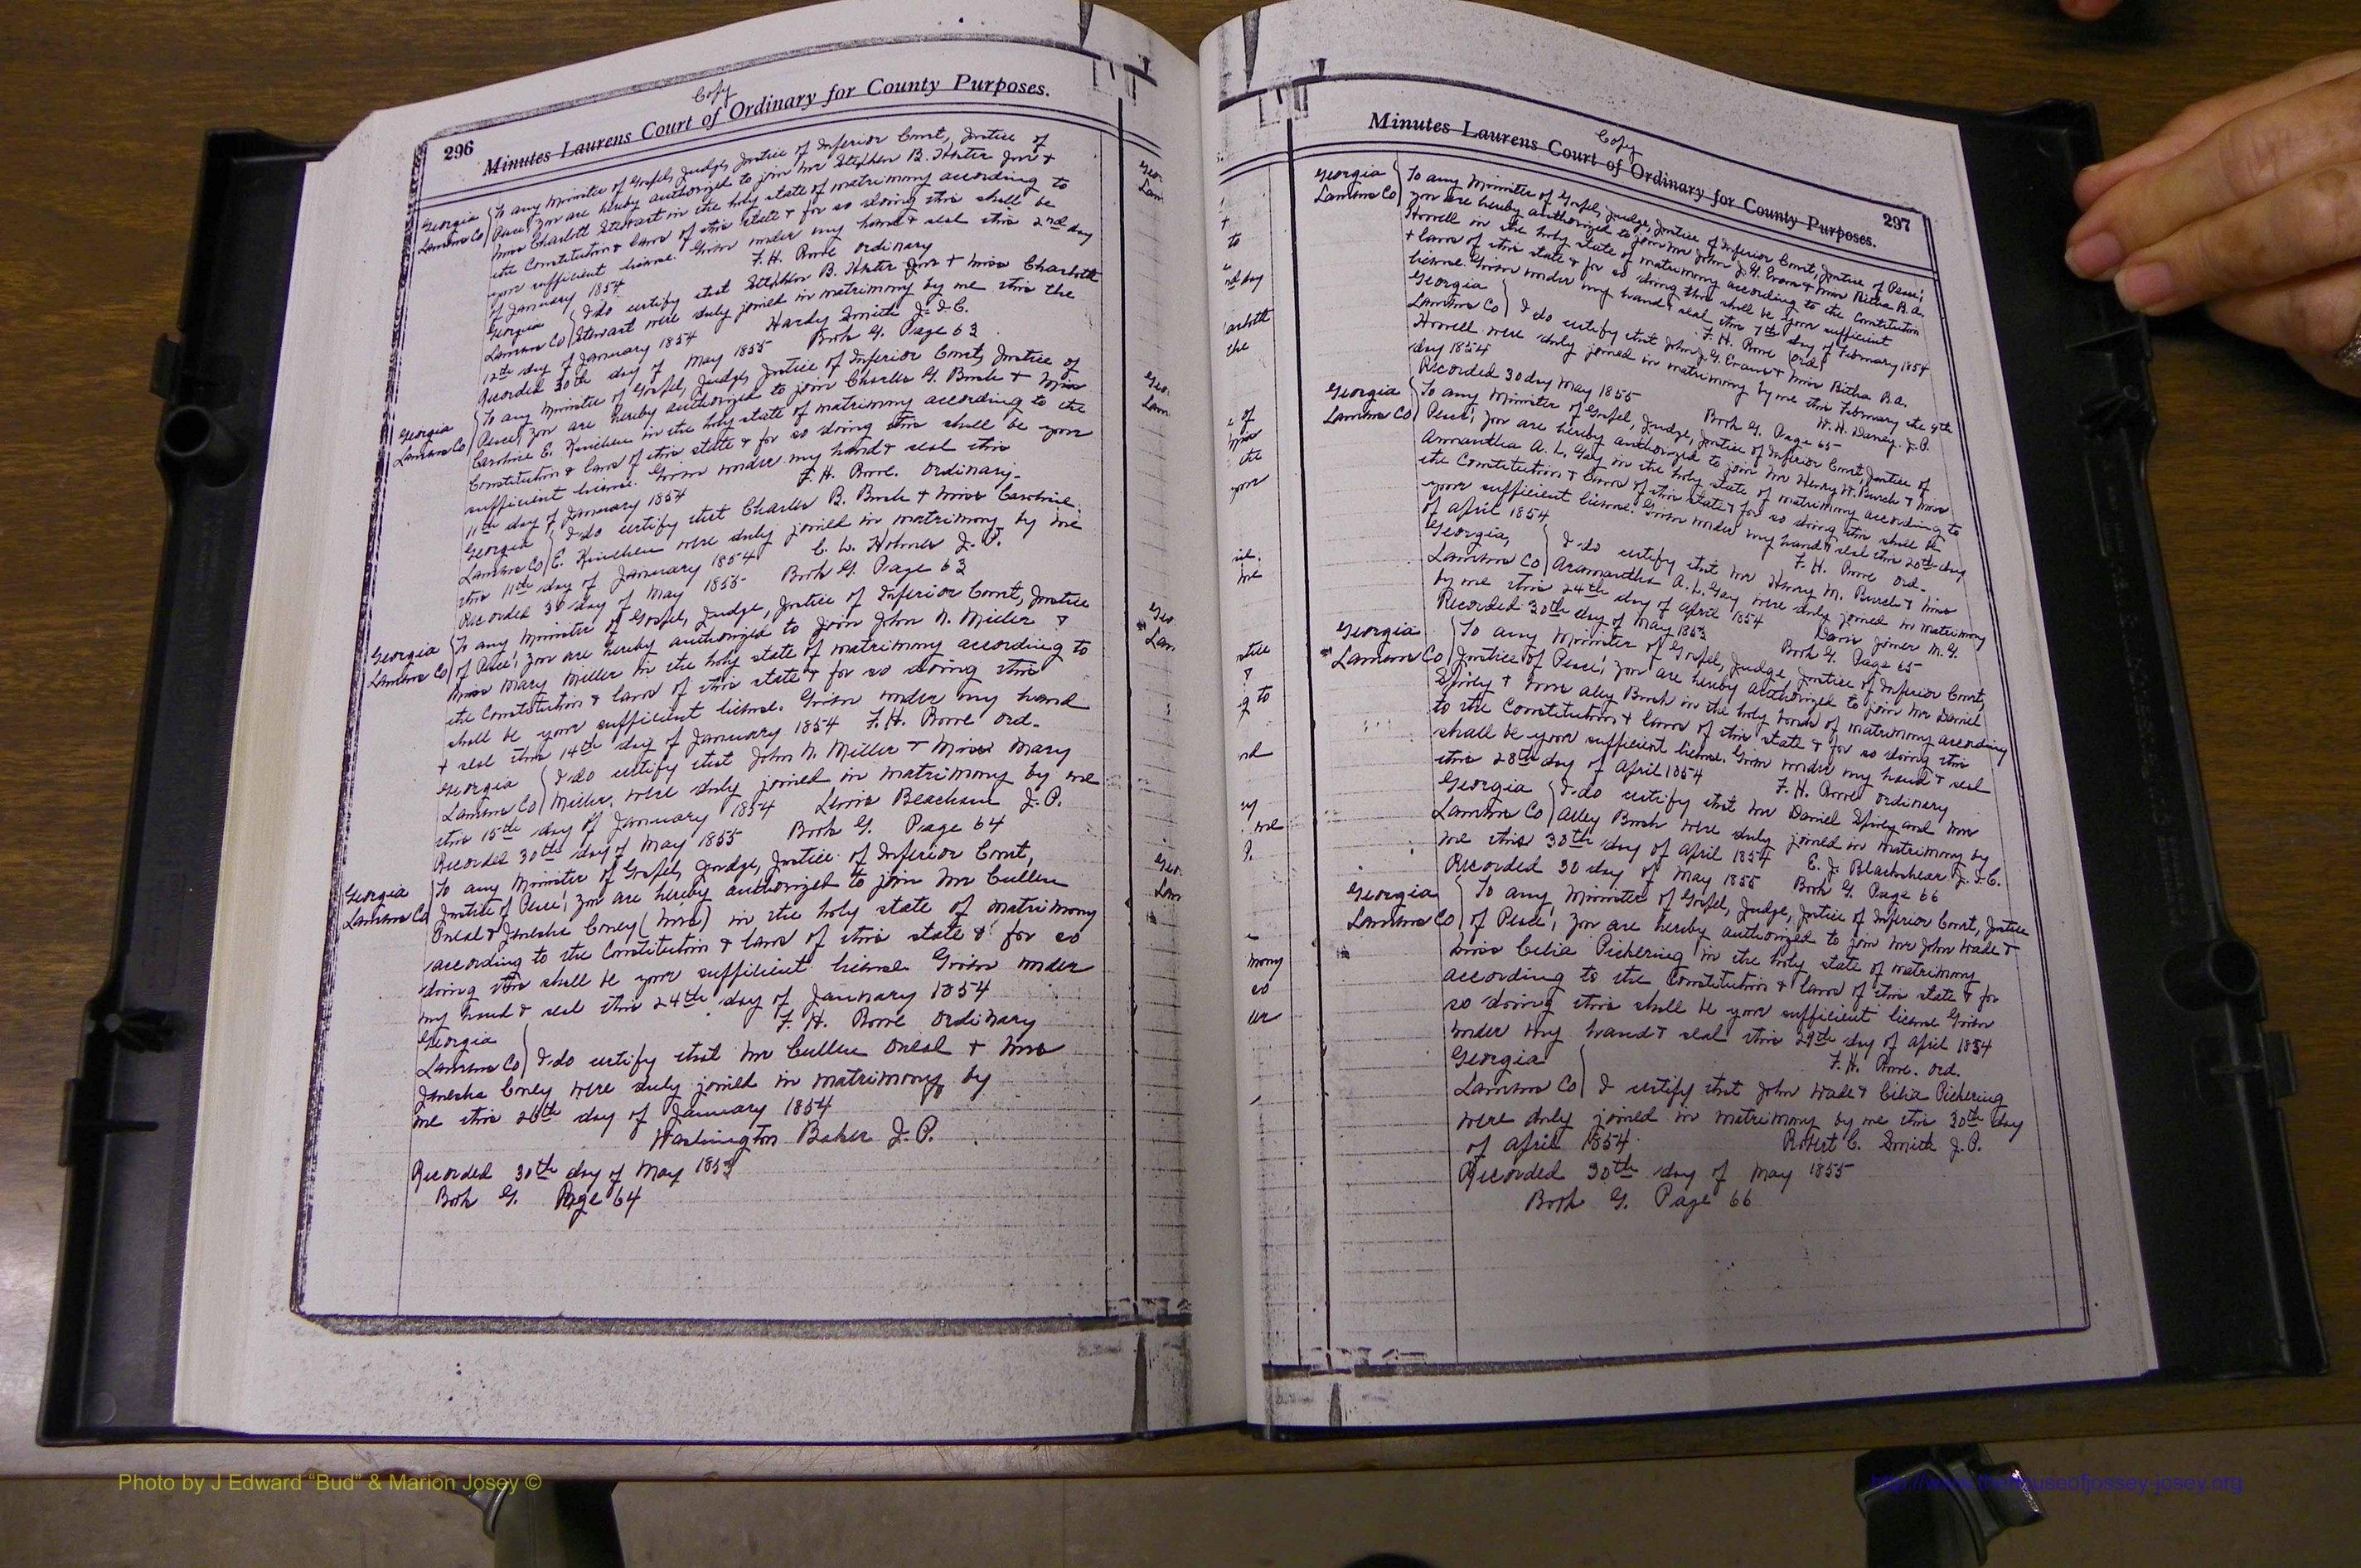 Copy
296 Minutes Laurens Court of Ordinary for County Purposes.
Georgia
Laurens Co
To any Minister of Gospel, Judge, Justice of Inferior Court, Justice of
Peace; you are hereby authorized to join Mr Stephen B. Hester Jnr &
Miss Charlott Stewart in the holy state of matrimony according to
the Constitution & laws of this state & for so doing this shall be
your sufficient license. Given under my hand & seal this 2nd day
of January 1854 F. H. Rowe ordinary
Georgia
Laurens Co
I do certify that Stephen B. Hester Jnr & Miss Charlott
Stewart were duly joined in matrimony by me this the
12th day of January 1854 Hardy Smith J.I.C.
Recorded 30th day of May 1855 Book G. Page 63
Georgia
Laurens Co
To any Minister of Gospel, Judge, Justice of Inferior Court, Justice of
Peace; you are hereby authorized to join Charles G. Bush & Miss
Caroline E. Kinchen in the holy state of matrimony according to the
Constitution & laws of this state & for so doing this shall be your
sufficient license. Given under my hand & seal this
11th day of January 1854 F. H. Rowe. Ordinary-
Georgia
Laurens Co
I do certify that Charles B. Bush & Miss Caroline.
E. Kinchen were duly joined in matrimony by me
this 11th day of January 1854 C. L. Holmes J. P.
Recorded 30 day of May 1855- Book G. Page 63
Georgia
Laurens Co
To any Minister of Gospel, Judge, Justice of Inferior Court, Justice
of Peace; you are hereby authorized to join John N. Miller &
Miss Mary Miller in the holy state of matrimony according to
the Constitution & laws of this state & for so doing this
shall be your sufficient license. Given under my hand
& seal this 14th day of January 1854 F. H. Rowe Ord-
Georgia
Laurens Co
I do certify that John N. Miller & Miss Mary
Miller, were duly joined in matrimony by me
this 15th day of January 1854 Lewis Beacham J. P.
Recorded 30th day of May 1855 Book G. Page 64
Georgia
Laurens Co
To any Minister of Gospel, Judge, Justice of Inferior Court,
Justice of Peace; you are hereby authorized to join Mr Cullen
Oneal & Jinesha Coney (Miss) in the holy state of matrimony
according to the Constitution & laws of this state & for so
doing this shall be your sufficient license Given under
my hand & seal this 24th day of January 1854
F. H. Rowe Ordinary
Georgia
Laurens Co
I do certify that Mr Cullen Oneal & Miss
Jinesha Coney were duly joined in matrimony by
me this 26th day of January 1854
Washington Baker J. P.
Recorded 30th day of May 1855
Book G. Page 64
Copy
Minutes Laurens Court of Ordinary for County Purposes. 297
Georgia
Laurens Co
To any Minister of Gospel, Judge, Justice of Inferior Court, Justice of Peace;
you are hereby authorized to join Mr John J. G. Evans & Miss Bitha B. A.
Howell in the holy state of matrimony according to the Constitution
& laws of this state & for so doing this shall be your sufficient
license. Given under my hand & seal this 7th day of February 1854
F. H. Rowe (Ord)
Georgia
Laurens Co
I do certify that John J. G. Evans & Miss Bitha B. A.
Howell were duly joined in matrimony by me this February the 9th
day 1854 W. H. Haney. J. P.
Recorded 30 day May 1855 Book G. Page 65
Georgia
Laurens Co
To any Minister of Gospel, Judge, Justice of Inferior Court, Justice of
Peace; you are hereby authorized to join Mr Henry W. Burch & Miss
Armantha A. L. Gay in the holy state of matrimony according to
the Constitution & laws of this state & for so doing this shall be
your sufficient license. Given under my hand & seal this 20th day
of April 1854 F. H. Rowe Ord.-
Georgia,
Laurens Co
I do certify that Mr Henry M. Burch & Miss
Aramantha A. L. Gay were duly joined in matrimony
by me this 24th day of April 1854 Davis Joiner M. G.
Recorded 30th day of May 1853 Book G. Page 65
Georgia
Laurens Co
To any Minister of Gospel, Judge, Justice of Inferior Court,
Justice of Peace; you are hereby authorized to join Mr Daniel
Spivey & Miss Aley Bush in the holy bonds of matrimony according
to the Constitution & laws of this state & for so doing this
shall be your sufficient license. Given under my hand & seal
this 28th day of April 1854 F. H. Rowe Ordinary
Georgia
Laurens Co
I do certify that Mr Daniel Spivey and Miss
Alley Bush were duly joined in matrimony by
me this 30th day of April 1854 E. J. Blackshear J.I.C.
Recorded 30 day of May 1855 Book G. Page 66
Georgia
Laurens Co
To any Minister of Gospel, Judge, Justice of Inferior Court, Justice
of Peace; you are hereby authorized to join Mr John Wade &
Miss Celia Pickering in the holy state of matrimony
according to the Constitution & laws of this state & for
so doing this shall be your sufficient license Given
under my hand & seal this 29th day of April 1854
F. H. Rowe. Ord.
Georgia
Laurens Co
I certify that John Wade & Cilia Pickering
were duly joined in matrimony by me this 30th day
of April 1854. Robert C. Smith J.P.
Recorded 30th day of May 1855
Book G. Page 66
Photo by J Edward “Bud” & Marion Josey ©
http://www.thehouseofjossey-josey.org